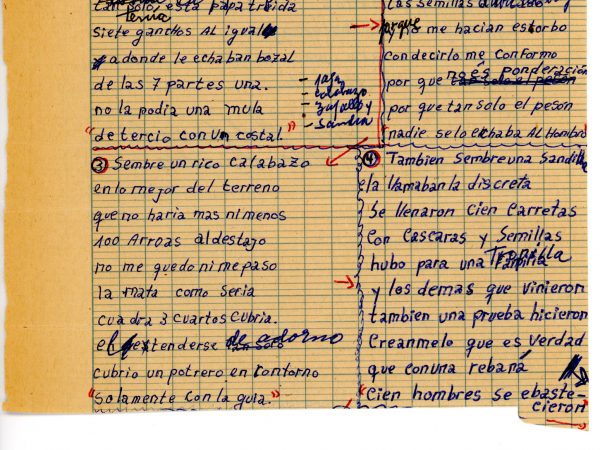 tan solo esta papa
tenia
siete ganchos Al igual
a donde le echaban bozal
de las 7 partes una.
no la podia una mula
"de tercio con un costal"
las semillas
porque
me hacian estorbo
con decirlo me conformo
por que no és ponderación
tan solo el peson
por que tan solo el peson
"nadie se lo echaba Al Hombro"
③ Sembre un rico calabazo
en lo mejor del terreno
que no haria mas ni menos
100 Arroas al destajo
no me quedo ni me paso
la mata como seria
cuadra 3 cuartos cubria.
el extenderse de adorno
tan solo
cubrio un potrero en contorno
"Solamente con la guia."
④ Tambien sembre una Sandilla
ela llamaban la discreta
Se llenaron cien carretas
Con Cascaras y Semillas
hubo para una Tropilla
familia
y los demas que vinieron
tambien una prueba hicieron
Creanmelo que es verdad
que con una rebaná
"Cien hombres se ebaste-
cieron"